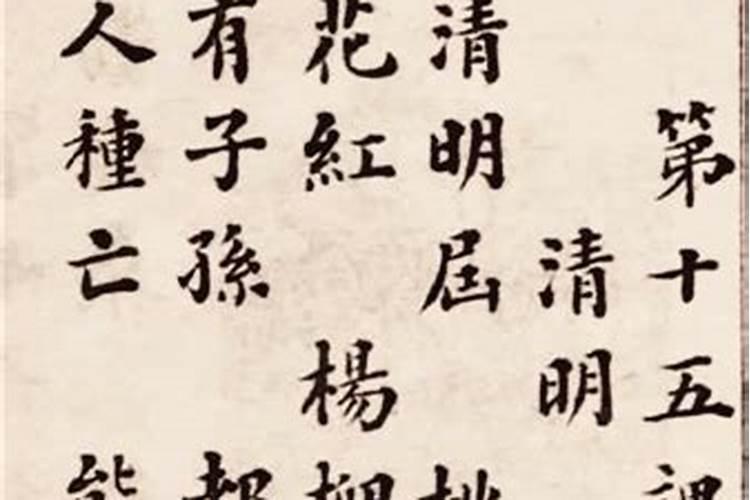 第十五課
清明
清明屆 桃
花紅 楊柳
有子孫 都
人種亡 能